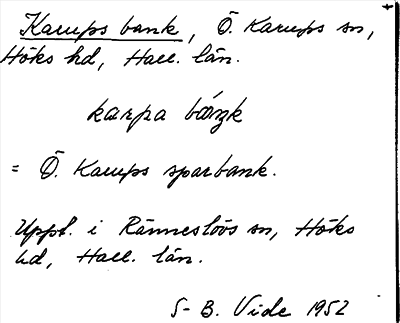 Karups bank, Ö. Karups sn,
Höks hd, Hall. län.
karpa báŋk
= Ö. Karups sparbank.
Uppt. i Ränneslövs sn, Höks
hd, Hall. län.
S-B. Vide 1952